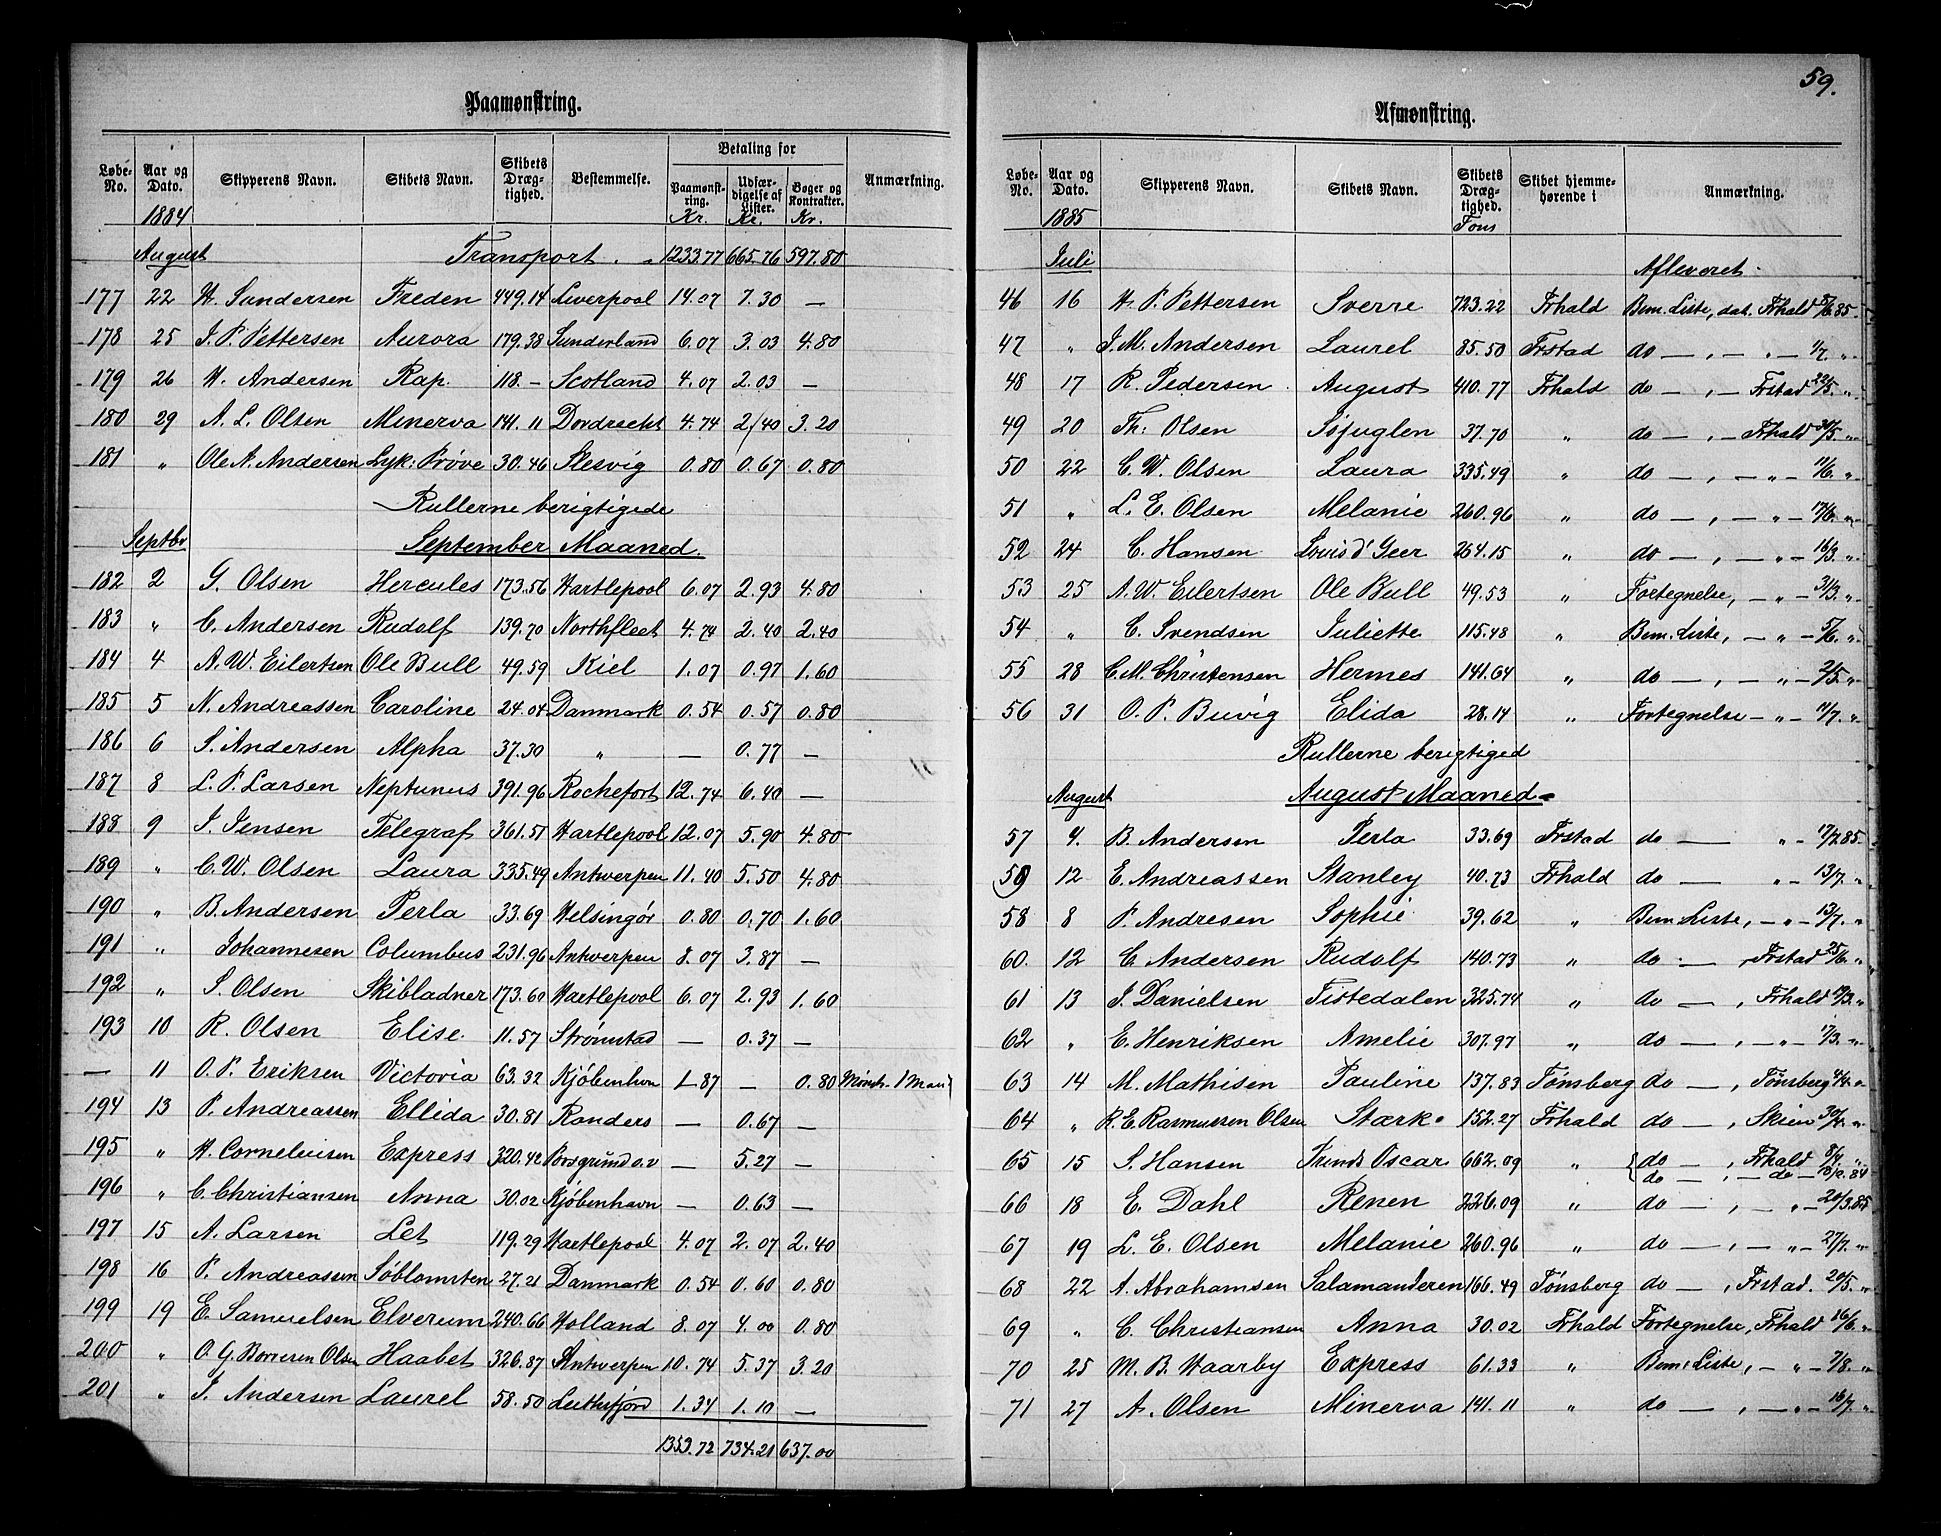 Paamønstring.
Løbe-No. Aar og Dato. Skipperens Navn. Skibets Navn. Skibets Dræg-tighed. Bestemmelse. Betaling for Paamønst-ring. Udfær-digelse af Lister. Bøger og Kontrakter. Anmærkning.
1884 Kr. Kr. Kr.
August Transport. 1233.77 665.76 597.80
177 22 H. Gundersen Freden 449.14 Liverpool 14.07 7.30 —
178 25 J. P. Pettersen Aurora 179.38 Sunderland 6.07 3.03 4.80
179 26 H. Andersen Rap. 118.— Scotland 4.07 2.03 —
180 29 A. L. Olsen Minerva 141.11 Dordrecht 4.74 2.40 3.20
181 „ Ole A. Andersen Lyk: Prøve 30.46 Slesvig 0.80 0.67 0.80
Rullerne berigtigede
Septbr September Maaned.
182 2 G. Olsen Hercules 173.56 Hartlepool 6.07 2.93 4.80
183 „ C. Andersen Rudolf 139.70 Northfleet 4.74 2.40 2.40
184 4 A. W. Eilertsen Ole Bull 49.59 Kiel 1.07 0.97 1.60
185 5 N. Andreassen Caroline 24.04 Danmark 0.54 0.57 0.80
186 6 S. Andersen Alpha 37.30 „ — 0.77 —
187 8 L. P. Larsen Neptunus 391.96 Rochefort 12.74 6.40 —
188 9 J. Jensen Telegraf 361.51 Hartlepool 12.07 5.90 4.80
189 „ C. W. Olsen Laura 335.49 Antwerpen 11.40 5.50 4.80
190 „ B. Andersen Perla 33.69 Helsingør 0.80 0.70 1.60
191 „ Johannesen Columbus 231.96 Antwerpen 8.07 3.87 —
192 „ S. Olsen Skibladner 173.60 Hartlepool 6.07 2.93 1.60
193 10 R. Olsen Elise. 11.57 Strømstad — 0.37 —
— 11 O. P. Eriksen Victoria 63.32 Kjøbenhvn 1.87 — 0.80 Mønst. 1 Mand
194 13 P. Andreassen Ellida 30.81 Randers — 0.67 —
195 „ H. Corneliusen Express 320.42 Porsgrund o.v — 5.27 —
196 „ C. Christiansen Anna 30.02 Kjøbenhavn — 0.63 —
197 15 A. Larsen Let 119.29 Hartlepool 4.07 2.07 2.40
198 16 P. Andreassen Søblomsten 27.21 Danmark 0.54 0.60 0.80
199 19 E. Samuelsen Elverum 240.66 Holland 8.07 4.00 0.80
200 „ O. G. Borresen Olsen Haabet 326.87 Antwerpen 10.74 5.37 3.20
201 „ J. Andersen Laurel 58.50 1.34 1.10 —
1353.72 734.21 637.00
59.
Afmønstring.
Løbe-No. Aar og Dato. Skipperens Navn. Skibets Navn. Skibets Dræg-tighed. Skibet hjemme-hørende i Anmærkning.
1885 Tons
Juli Afleveret.
46 16 H. P. Pettersen Sverre 723.22 Frhald Bem. Liste, dat. Frhald 5/6 85.
47 „ J. M. Andersen Laurel 85.50 Frstad do — , — „ — 1/7. „
48 17 R. Pedersen August 410.77 Frhald do — , — Frstad 22/5. „
49 20 Th: Olsen Søfuglen 37.70 „ do — , — Frhald 30/5. „
50 22 C. W. Olsen Laura 335.49 „ do — , — „ — 11/6. „
51 „ L. E. Olsen Melanie 260.96 „ do — , — „ — 17/6. „
52 24 C. Hansen Louis d'Geer 264.15 „ do — , — „ — 16/3. „
53 25 A. W. Eilertsen Ole Bull 49.53 „ Fortegnelse, — „ — 31/3. „
54 „ C. Svendsen Juliette 115.48 „ Bem. Liste, — „ — 5/6. „
55 28 C. M. Christensen Hermes 141.64 „ do — , — „ — 2/5. „
56 31 O. P. Buvig Elida 28.14 „ Fortegnelse — „ — 11/7. „
Rullerne berigtiged
August August Maaned
57 4. B. Andersen Perla 33.69 Frstad do — „ — 17/7 85.
59 12 E. Andreassen Stanley 40.73 Frhald do — „ — 13/7. „
58 8 P. Andresen Sophie 39.62 „ Bem. Liste, — „ — 13/7. „
60. 12 C Andersen Rudolf 140.73 „ do. — , Frstad 25/6. „
61 13 J. Danielsen Tistedalen 325.74 „ do — , Frhald „
62 „ E. Henriksen Amelie 307.97 „ do — , — „ — 17/3. „
63 14 M. Mathisen Pauline 137.83 Tønsberg do — , Tønsberg 4/4. „
64 „ R. E. Rasmussen Olsen Stærk 152.27 Frhald do — , Skien „
65 15 S. Hansen Oscar 662.09 „ do — , Frhald 8/4. „
do — , — do — 84
66 18 E. Dahl Renen 226.09 „ do — , — „ — 20/3. 85
67 19 L. E. Olsen Melanie 260.96 „ do — , — „ — 27/7. „
68 22 A. Abrahamsen Salamanderen 166.49 Tønsberg do — , Frstad. 20/5. „
69 „ C. Christiansen Anna 30.02 Frhald Fortegnelse, Frhald 16/6. „
70 25 M. B. Haarby Express 61.33 „ Bem. Liste, — „ — 7/8. „
71 27 A. Olsen Minerva 141.11 „ do — , — „ — 16/7. „